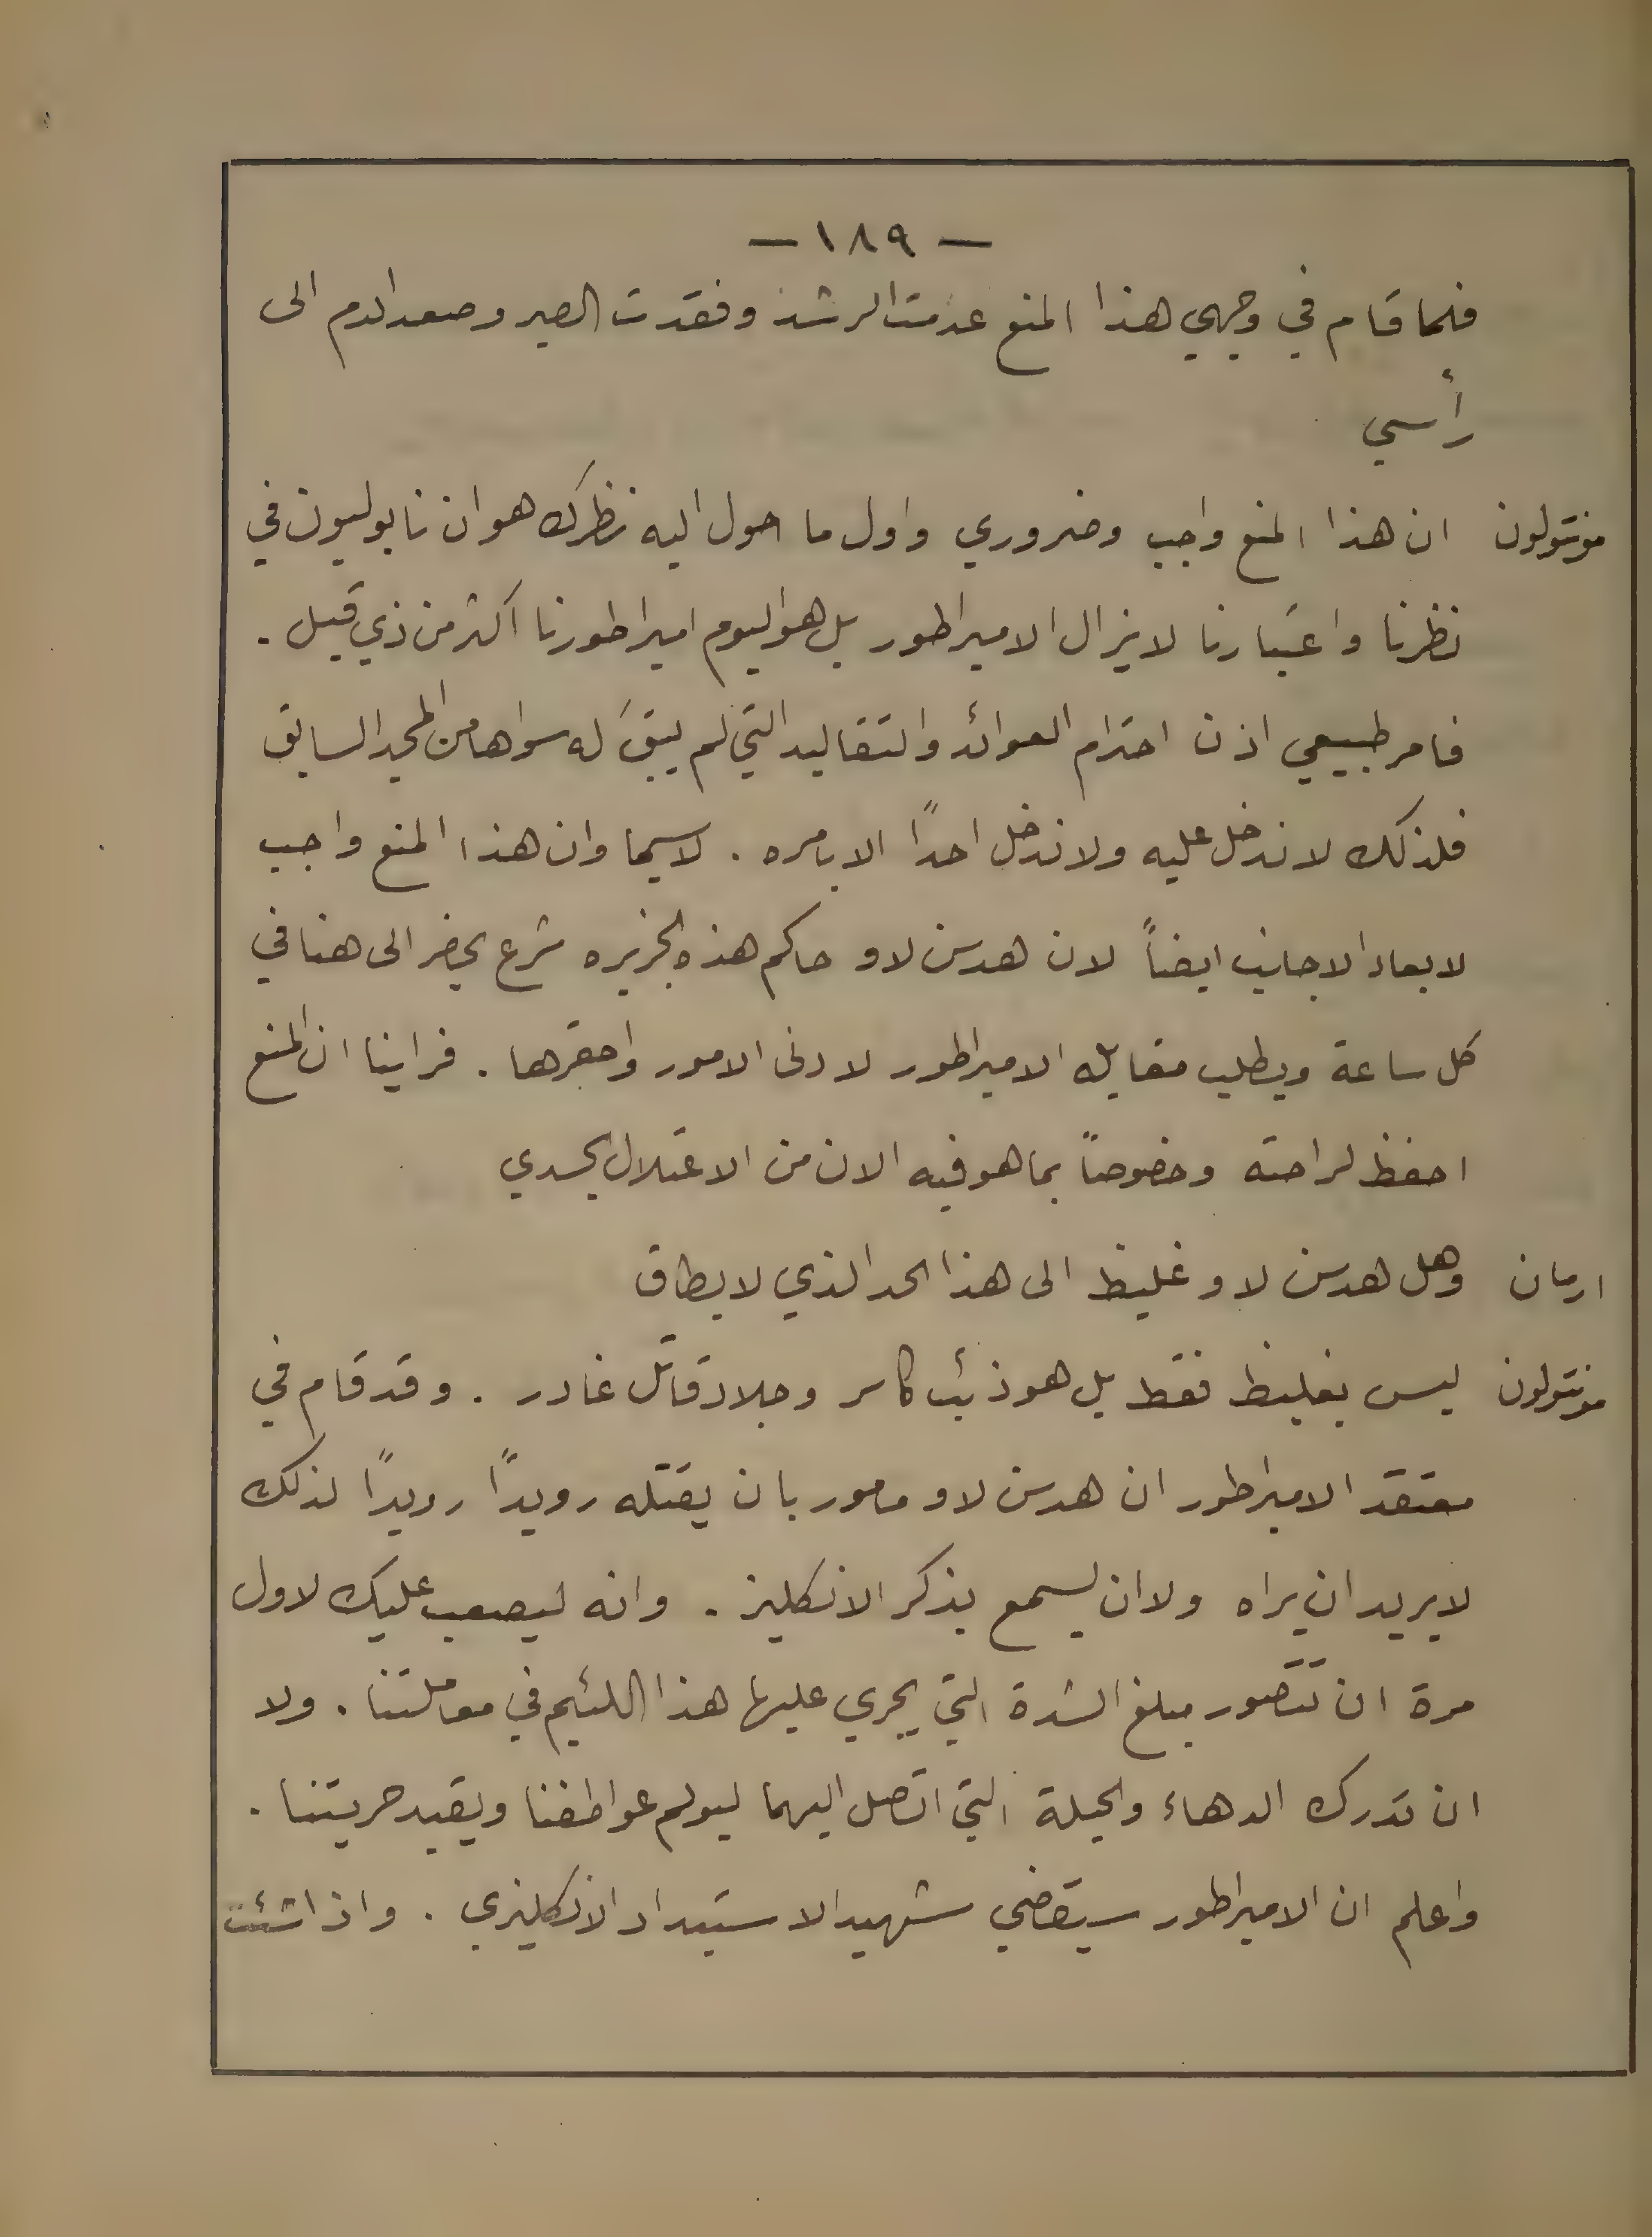 — ١٨٩ —
فلما قام في وجهي هذا المنع عدمت الرشد وفقدت الصبر وصعد الدم الى
رأسي
مونتولون ان هذا المنع واجب وضروري واول ما احول اليه نظرك هو ان نابوليون في
نظرنا واعتبارنا لا يزال الامبراطور بل هو اليوم امبراطورنا اكثر من ذي قبل .
فامر طبيعي اذن احترام العوائد والتقاليد التي لم يبقَ له سواها من المجد السابق
فلذلك لا ندخل عليه ولا ندخل احدًا الا بامره . لا سيما وان هذا المنع واجب
لابعاد الاجانب ايضاً لان هدسن لاو حاكم هذه الجزيره شرع يحضر الى هنا في
كل ساعة ويطلب مقابلة الامبراطور لادنى الامور واحقرها . فراينا ان المنع
احفظ لراحته وخصوصاً بما هو فيه الان من الاعتلال الجسدي
ارمان وهل هدسن لاو غليظ الى هذا الحد الذي لا يطاق
مونتولون ليس بغليظ فقط بل هو ذئب كاسر وجلاد قاتل غادر . وقد قام في
معتقد الامبراطور ان هدسن لاو مامور بان يقتله رويدًا رويدًا لذلك
لا يريد ان يراه ولا ان يسمع بذكر الانكليز . وانه ليصعب عليك لاول
مرة ان تتصور مبلغ الشدة التي يجري عليها هذا اللئيم في معاملتنا . ولا
ان تدرك الدهاء والحيلة التي اتصل اليهما ليولم عواطفنا ويقيد حريتنا .
واعلم ان الامبراطور سيقضي شهيد الاستبداد الانكليزي . واذا شئت